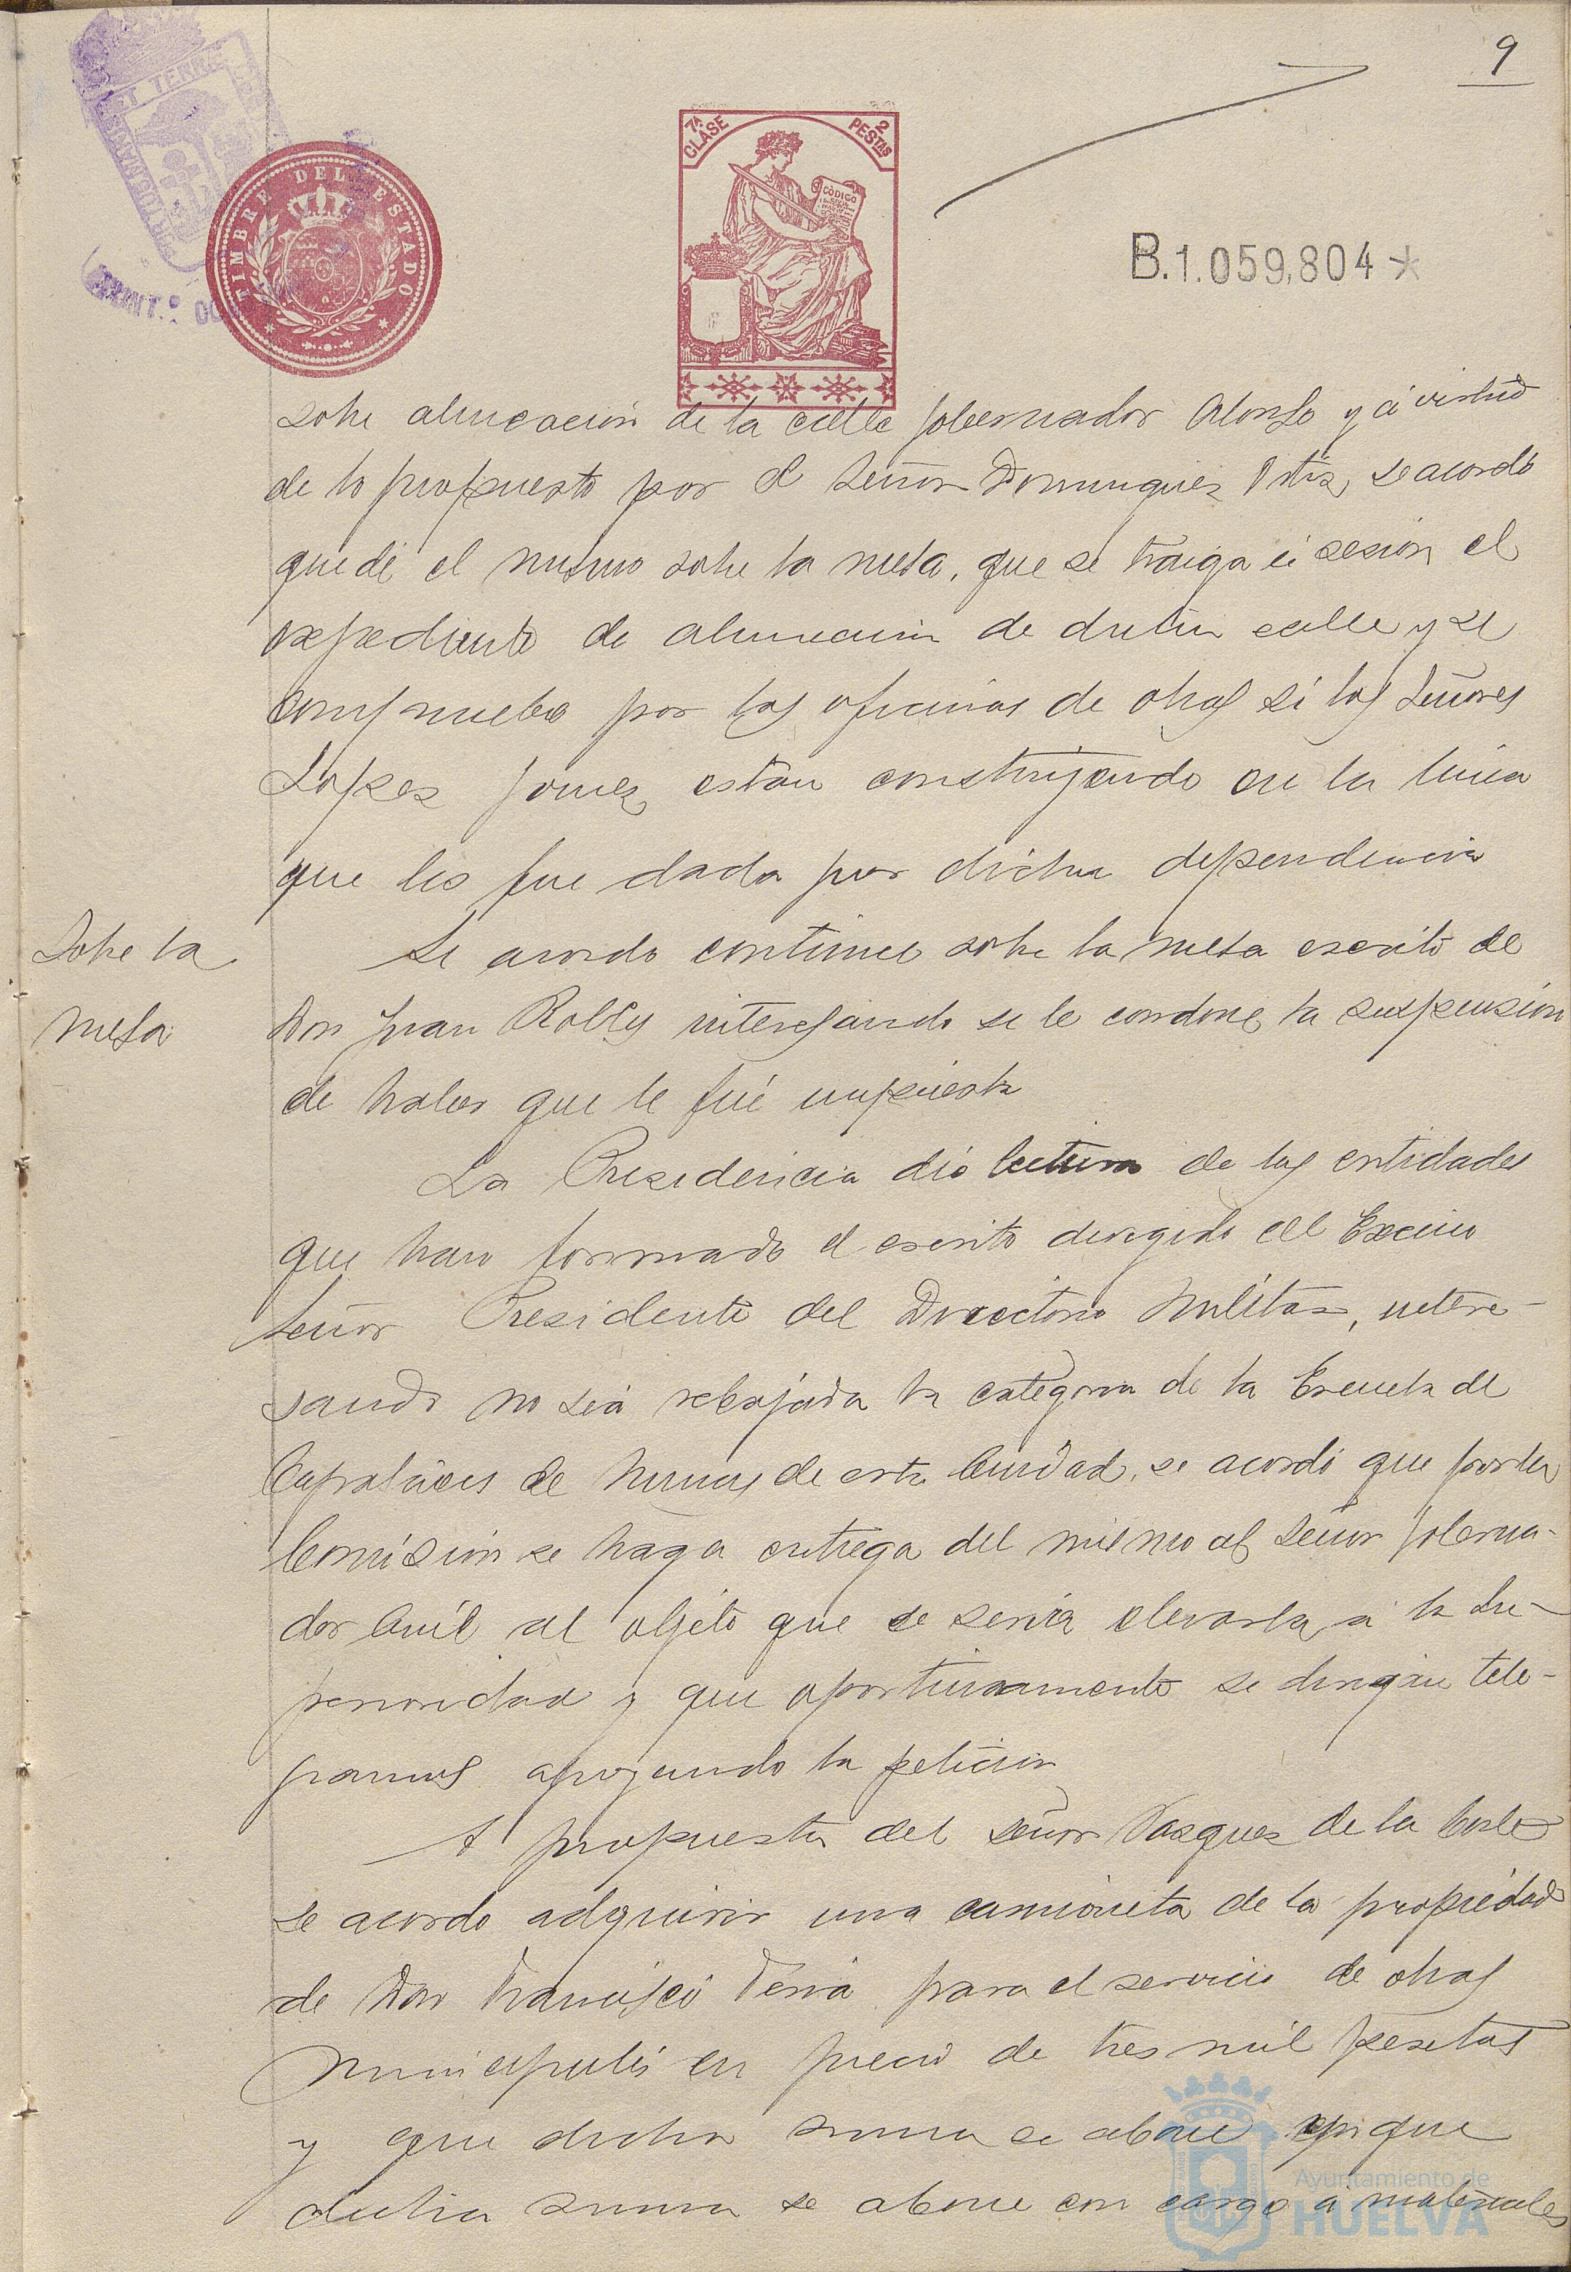 9
ET TERRAE
TIMBRE DEL ESTADO
7ª CLASE
2 PESTAS
CÓDIGO
B.1.059,804*
sobre alineación de la calle Gobernador Alonso y á virtud
de lo propuesto por el Señor Dominguez Ortiz, se acordó
quede el mismo sobre la mesa, que se traiga á sesión el
expediente de alineacion de dicha calle y se
compruebe por las oficinas de obras si los Señores
Lopez Gomez, están construyendo en la linea
que les fue dada por dicha dependencia
Sobre la
mesa
Se acordo continue sobre la mesa escrito de
Don Juan Robly interesando se le condone la suspensión
de haber que le fué impuesta
La Presidencia dió lectura de las entidades
que han formado el escrito dirigido al Excmo
Señor Presidente del Directorio Militar, intere-
sando no sea rebajada la categoria de la Escuela de
Capataces de Minas de esta Ciudad, se acordó que por la
Comisión se haga entrega del mismo al Señor Goberna-
dor Civil al objeto que se sirva elevarla á la Su-
perioridad y que oportunamente se dirijan tele-
gramas apoyando la peticion
A propuesta del Señor Vazquez de la Corte
se acordo adquirir una camioneta de la propiedad
de Don Francisco para el servicio de obras
municipales en precio de tres mil pesetas
y que dicha suma se abone que
dicha suma se abone con cargo á materiales
Ayuntamiento de
HUELVA